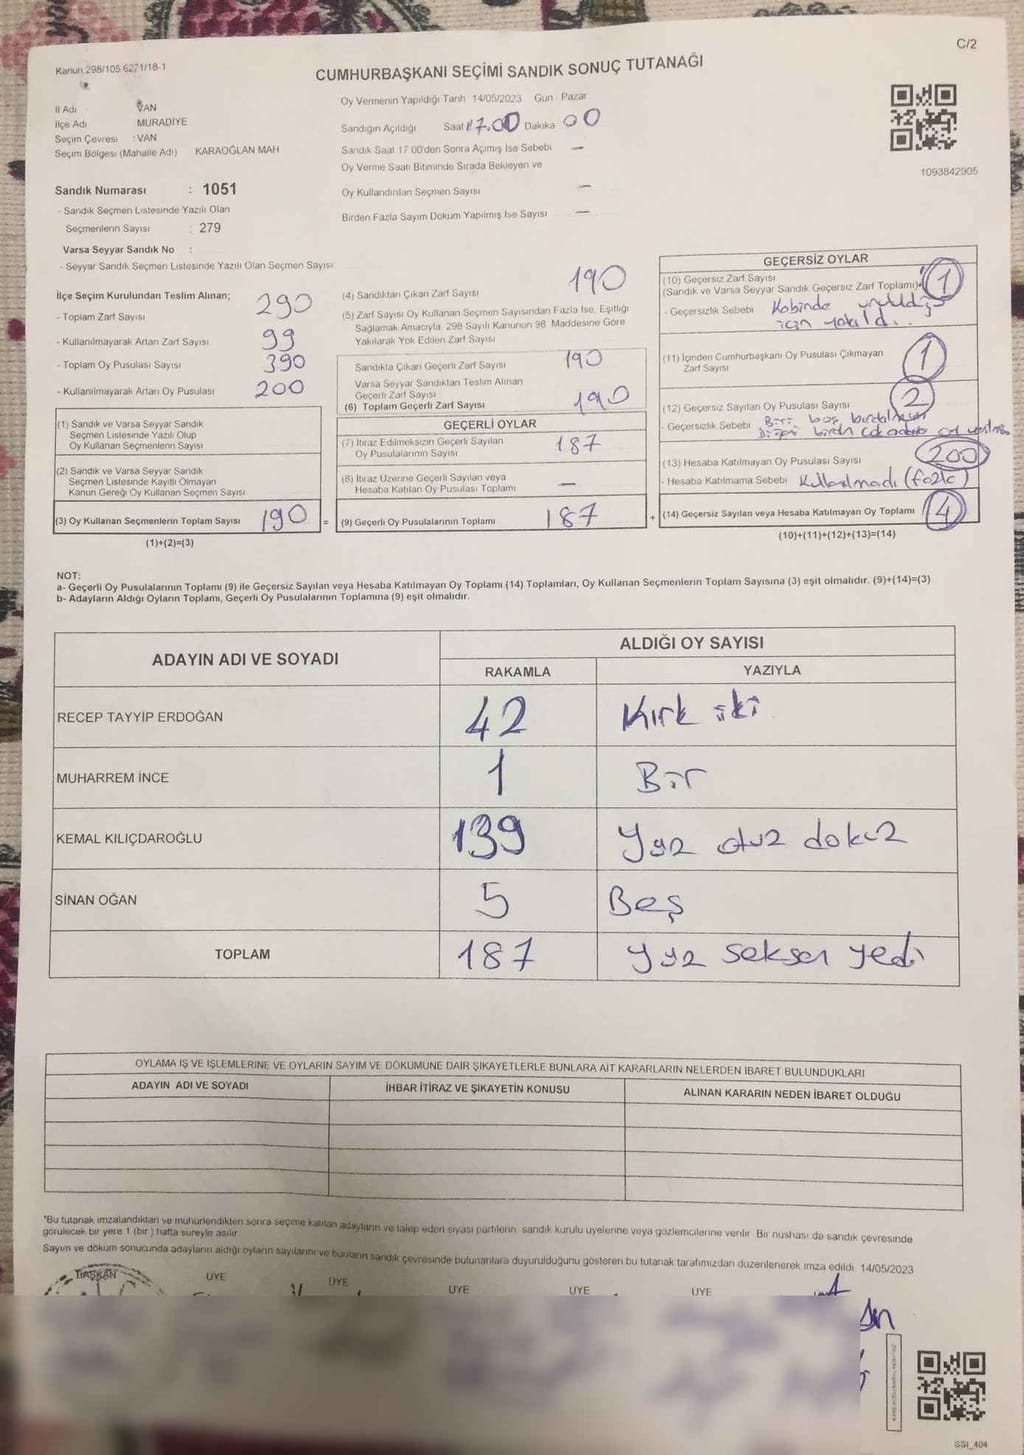 C/2
Kanun.298/105 6271/18-1
CUMHURBAŞKANI SEÇİMİ SANDIK SONUÇ TUTANAĞI
İl Adı VAN
İlçe Adı MURADİYE
Seçim Çevresi : VAN
Seçim Bölgesi (Mahalle Adı) KARAOĞLAN MAH
Sandık Numarası : 1051
- Sandık Seçmen Listesinde Yazılı Olan
Seçmenlerin Sayısı : 279
Varsa Seyyar Sandık No :
- Seyyar Sandık Seçmen Listesinde Yazılı Olan Seçmen Sayısı
Oy Vermenin Yapıldığı Tarih 14/05/2023 Gün Pazar
Sandığın Açıldığı Saat 17.00 Dakika 00
Sandık Saat 17 00'den Sonra Açımış İse Sebebi —
Oy Verme Saati Bitiminde Sırada Bekleyen ve
Oy Kullandırılan Seçmen Sayısı —
Birden Fazla Sayım Döküm Yapılmış İse Sayısı —
1093842905
İlçe Seçim Kurulundan Teslim Alınan;
- Toplam Zarf Sayısı 290
- Kullanılmayarak Artan Zarf Sayısı 99
- Toplam Oy Pusulası Sayısı 390
- Kullanılmayarak Artan Oy Pusulası 200
(1) Sandık ve Varsa Seyyar Sandık
Seçmen Listesinde Yazılı Olup
Oy Kullanan Seçmenlerin Sayısı
(2) Sandık ve Varsa Seyyar Sandık
Seçmen Listesinde Kayıtlı Olmayan
Kanun Gereği Oy Kullanan Seçmen Sayısı
(3) Oy Kullanan Seçmenlerin Toplam Sayısı 190 =
(1)+(2)=(3)
(4) Sandıktan Çıkan Zarf Sayısı 190
(5) Zarf Sayısı Oy Kullanan Seçmen Sayısından Fazla İse, Eşitliği
Sağlamak Amacıyla 298 Sayılı Kanunun 98 Maddesine Göre
Yakılarak Yok Edilen Zarf Sayısı
Sandıkta Çıkan Geçerli Zarf Sayısı 190
Varsa Seyyar Sandıktan Teslim Alınan
Geçerli Zarf Sayısı
(6) Toplam Geçerli Zarf Sayısı 190
GEÇERLİ OYLAR
(7) İtiraz Edilmeksizin Geçerli Sayılan
Oy Pusulalarının Sayısı 187
(8) İtiraz Üzerine Geçerli Sayılan veya
Hesaba Katılan Oy Pusulası Toplamı —
(9) Geçerli Oy Pusulalarının Toplamı 187 +
GEÇERSİZ OYLAR
(10) Geçersiz Zarf Sayısı
(Sandık ve Varsa Seyyar Sandık Geçersiz Zarf Toplamı) 1
- Geçersizlik Sebebi Kabinde unutulduğu
için yakıldı.
(11) İçinden Cumhurbaşkanı Oy Pusulası Çıkmayan
Zarf Sayısı 1
(12) Geçersiz Sayılan Oy Pusulası Sayısı 2
- Geçersizlik Sebebi Biri boş
(13) Hesaba Katılmayan Oy Pusulası Sayısı 200
- Hesaba Katılmama Sebebi Kullanılmadı (fazla)
(14) Geçersiz Sayılan veya Hesaba Katılmayan Oy Toplamı 4
(10)+(11)+(12)+(13)=(14)
NOT:
a- Geçerli Oy Pusulalarının Toplamı (9) ile Geçersiz Sayılan veya Hesaba Katılmayan Oy Toplamı (14) Toplamları, Oy Kullanan Seçmenlerin Toplam Sayısına (3) eşit olmalıdır. (9)+(14)=(3)
b- Adayların Aldığı Oyların Toplamı, Geçerli Oy Pusulalarının Toplamına (9) eşit olmalıdır.
ADAYIN ADI VE SOYADI ALDIĞI OY SAYISI
RAKAMLA YAZIYLA
RECEP TAYYİP ERDOĞAN 42 Kırk iki
MUHARREM İNCE 1 Bir
KEMAL KILIÇDAROĞLU 139 Yüz otuz dokuz
SİNAN OĞAN 5 Beş
TOPLAM 187 Yüz seksen yedi
OYLAMA İŞ VE İŞLEMLERİNE VE OYLARIN SAYIM VE DÖKÜMÜNE DAİR ŞİKAYETLERLE BUNLARA AİT KARARLARIN NELERDEN İBARET BULUNDUKLARI
ADAYIN ADI VE SOYADI İHBAR İTİRAZ VE ŞİKAYETİN KONUSU ALINAN KARARIN NEDEN İBARET OLDUĞU
*Bu tutanak imzalandıktan ve mühürlendikten sonra seçime katılan adayların ve talep eden siyasi partilerin sandık kurulu üyelerine veya gözlemcilerine verilir. Bir nüshası da sandık çevresinde
görülecek bir yere 1 (bir) hafta süreyle asılır.
Sayım ve döküm sonucunda adayların aldığı oyların sayılarını ve bunların sandık çevresinde bulunanlara duyurulduğunu gösteren bu tutanak tarafımızdan düzenlenerek imza edildi. 14/05/2023
BAŞKAN ÜYE ÜYE ÜYE ÜYE ÜYE
SSI_404